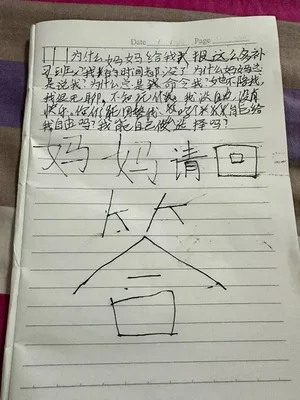 Date / / Page
为什么妈妈给我报这么多补
习班?我的时间都没了为什么妈妈总
是说我?为什么总是命令我?也不陪我,
我很无聊,不知玩什么,我没自由,没有
快乐,你们能 自己给
我自由吗?我能自己做选择吗?
妈妈请回
答